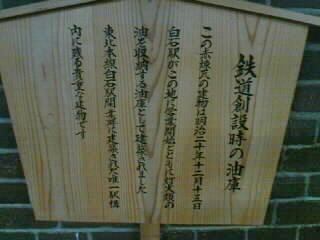 鉄道創設時の油庫
この赤煉瓦の建物は明治二十年十二月十三日
白石駅がこの地に営業開始とともに灯火類の
油を収納する油庫として建築されました
東北本線白石駅開業時に建築された唯一駅構
内に残る貴重な建物です